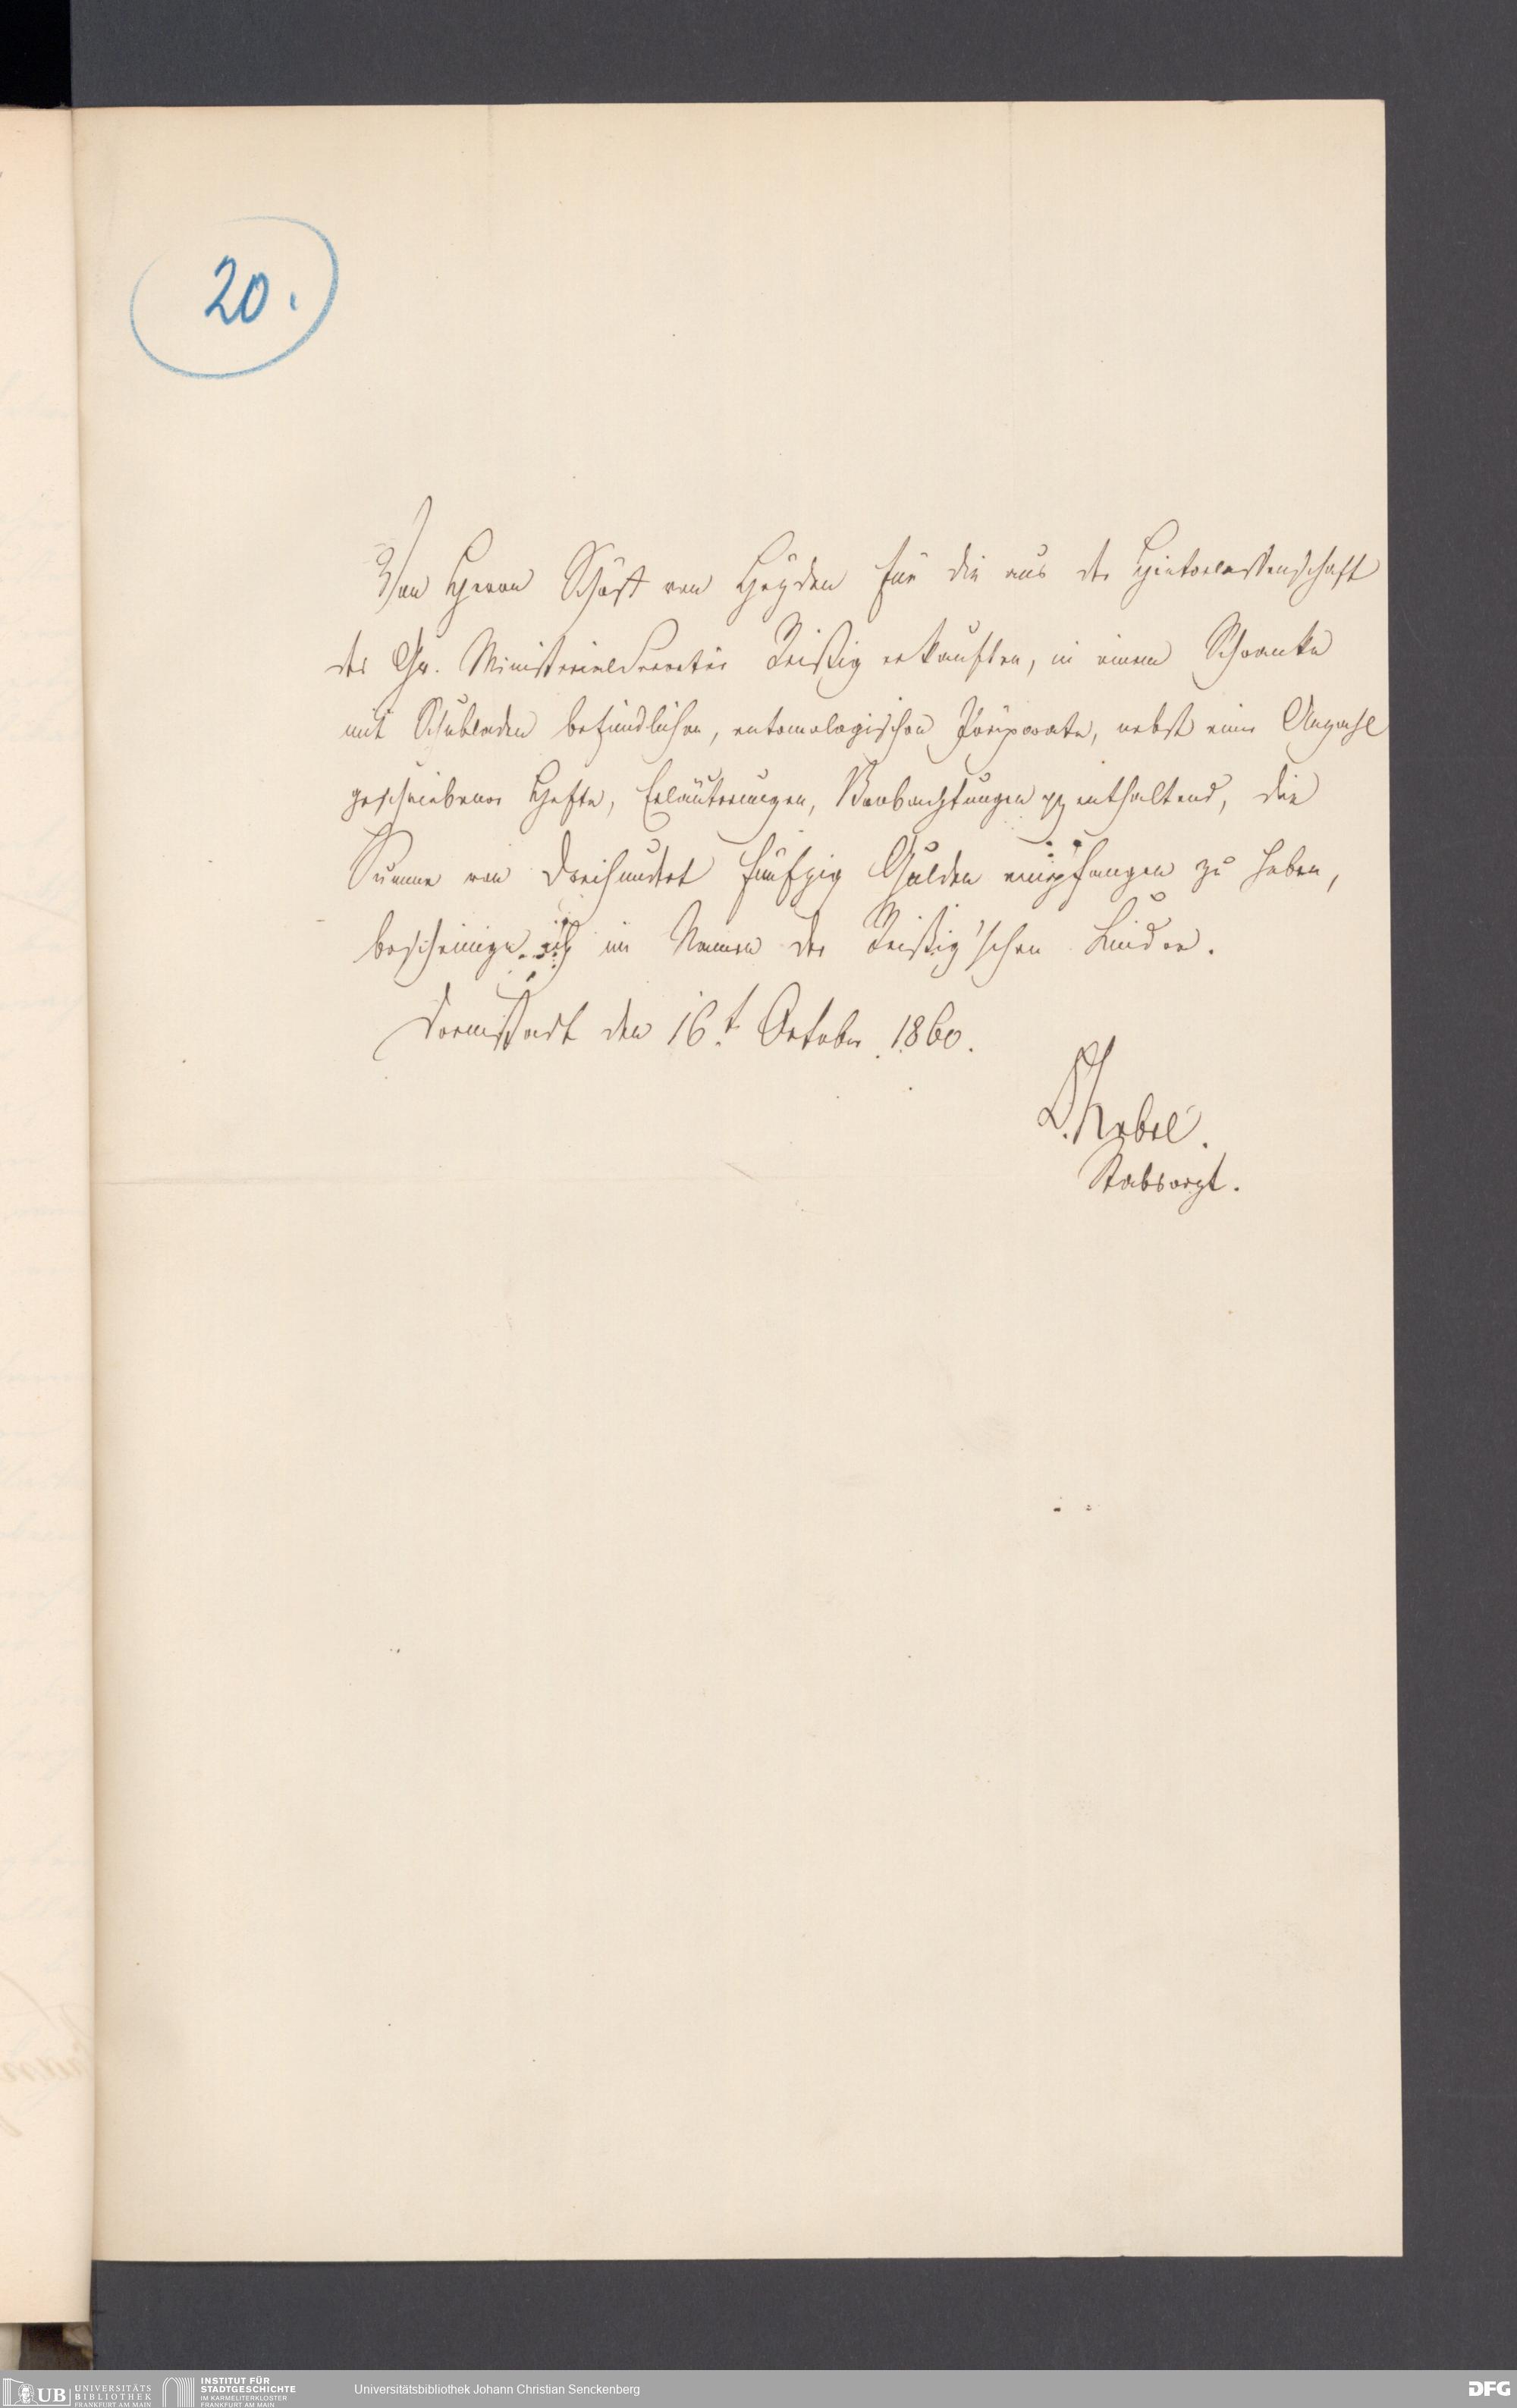 20.
Von Herrn Schöff von Heyden für die aus der Hinterlassenschaft
des Gr. Ministerialsecretär Reißig erkauften, in einem Schranke
mit Schubladen befindlichen, entomologischen Präparate, nebst einer Anzahl
geschriebener Hefte, Erläuterungen, Beobachtungen enthaltend, die
Summe von Dreihundert fünfzig Gulden empfangen zu haben,
bescheinige ich im Namen der Reißig'schen Kinder.
Darmstadt den 16t October 1860.
Stabsarzt.
UB UNIVERSITÄTS
BIBLIOTHEK
FRANKFURT AM MAIN
INSTITUT FÜR
STADTGESCHICHTE
IM KARMELITERKLOSTER
FRANKFURT AM MAIN
Universitätsbibliothek Johann Christian Senckenberg
DFG